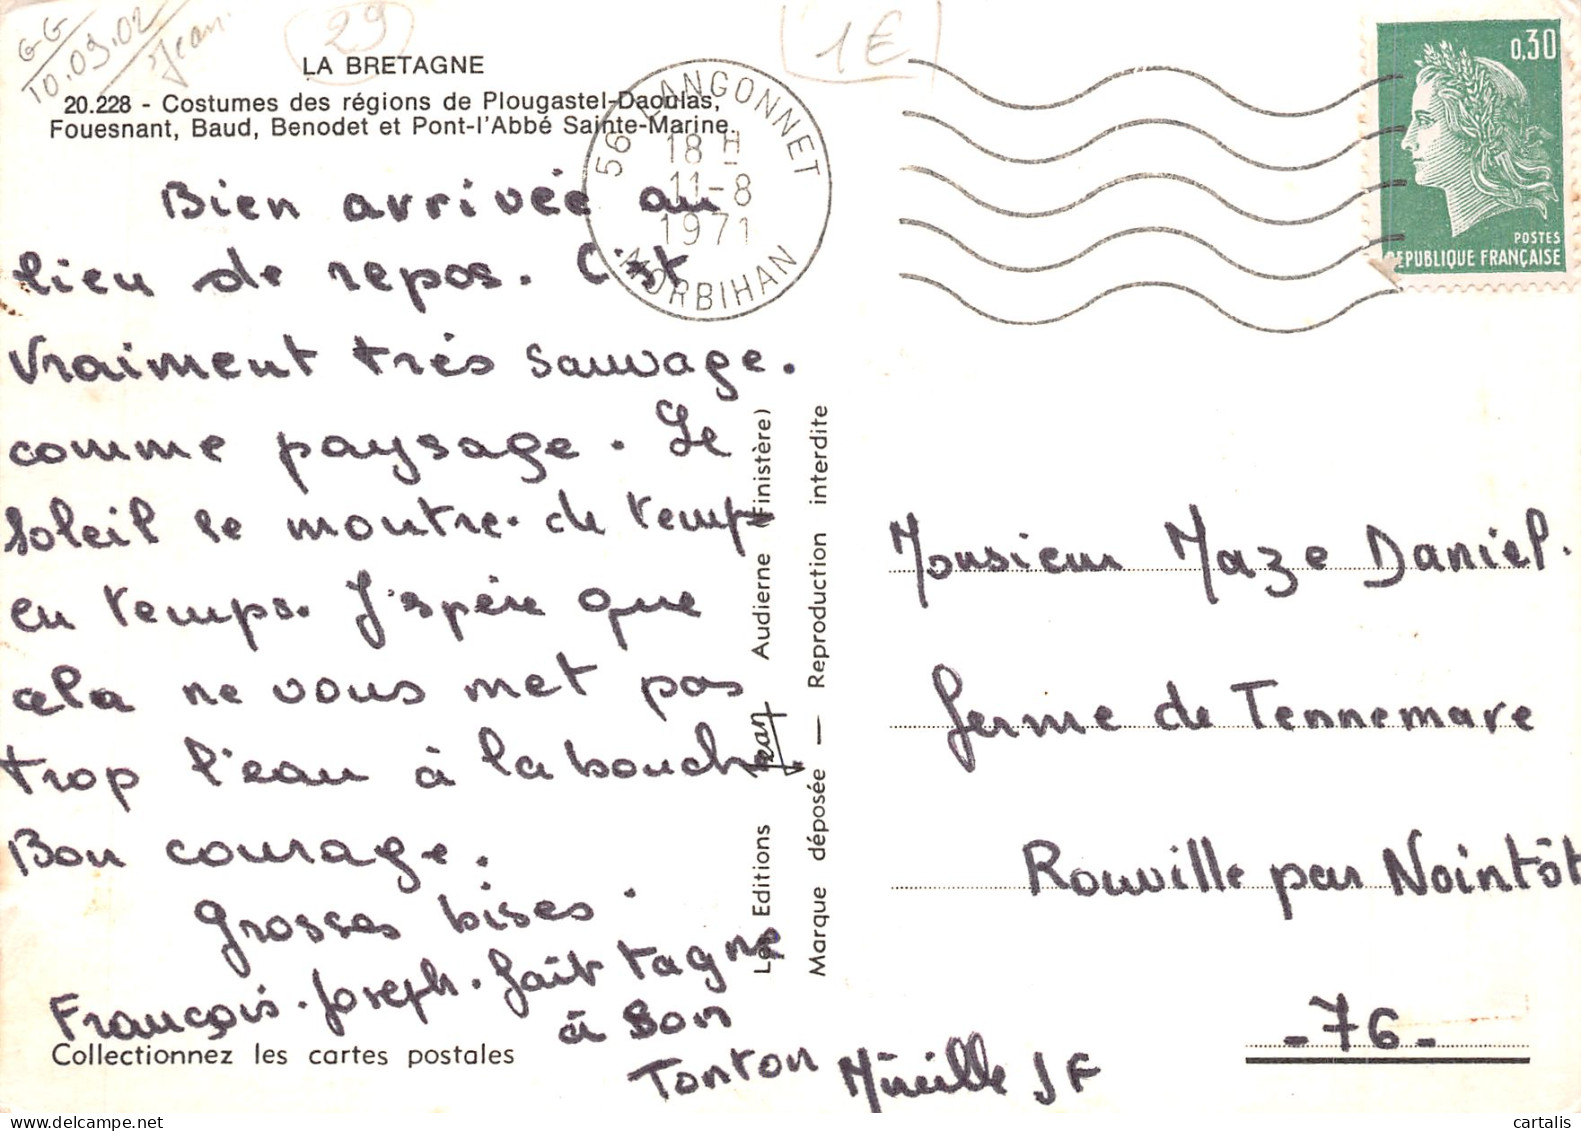 GG
10.09.02
Jean.
29
1€
LA BRETAGNE
20.228 - Costumes des régions de Plougastel-Daoulas,
Fouesnant, Baud, Benodet et Pont-l'Abbé Sainte-Marine.
56 LANGONNET
18 H
11-8
1971
MORBIHAN
0,30
POSTES
REPUBLIQUE FRANÇAISE
Bien arrivée au
lieu de repos. C'est
vraiment très sauvage.
comme paysage. Le
soleil se montre. de temps
en temps. J'espère que
cela ne vous met pas
trop l'eau à la bouche
Bon courage.
Grosses bises.
François. Joseph. fait tagne
à son
Tonton Mireille JF
Collectionnez les cartes postales
Les Editions Jean Audierne (Finistère)
Marque déposée — Reproduction interdite
Monsieur Maze Daniel.
ferme de Tennemare
Rouville par Nointôt
- 76 -